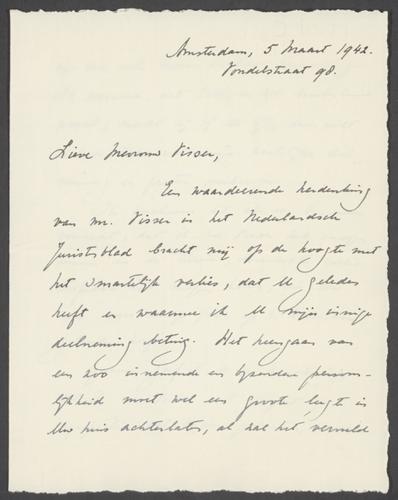 Amsterdam, 5 Maart 1942.
Vondelstraat 98.
Lieve Mevrouw Visser,
Een waardeerende herdenking
van mr. Visser in het Nederlandsch
Juristenblad bracht mij op de hoogte met
het smartelijk verlies, dat U geleden
heeft en waarmee ik U mijn innige
deelneming betuig. Het heengaan van
een zoo innemende en bijzondere persoon-
lijkheid moet wel een groote leegte in
Uw huis achterlaten, al zal het vervulde